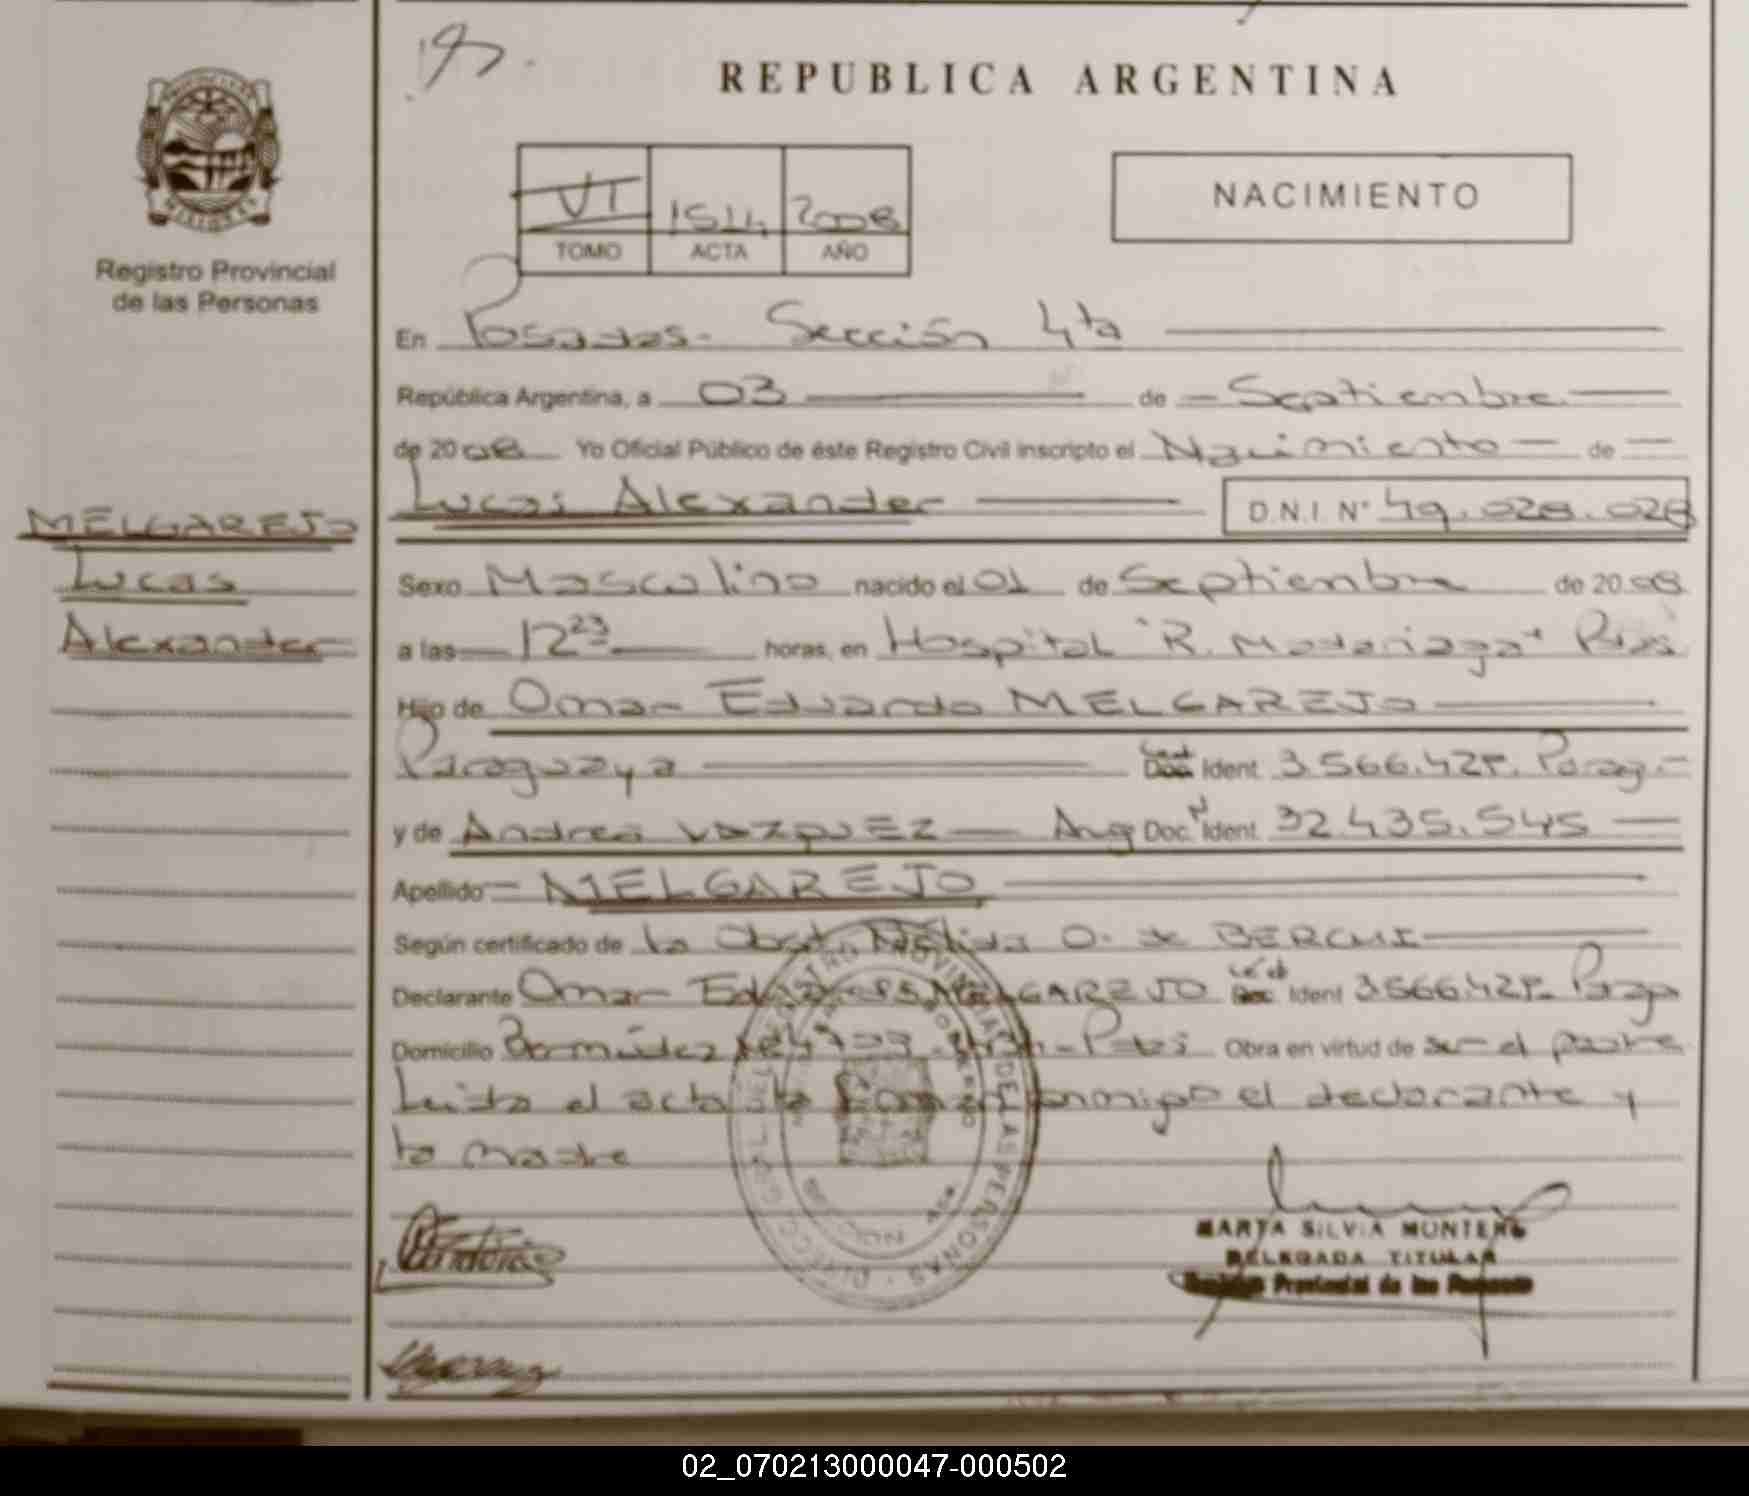 REPUBLICA ARGENTINA
PROVINCIA DE
MISIONES
Registro Provincial
de las Personas
VI 1514 2008
TOMO ACTA AÑO
NACIMIENTO
En Posadas - Sección 4ta
República Argentina, a 03 de Septiembre
de 2008 Yo Oficial Público de éste Registro Civil inscripto el Nacimiento de
Lucas Alexander D.N.I. N° 49.028.028
MELGAREJO
Lucas
Alexander
Sexo Masculino nacido el 01 de Septiembre de 2008
a las 12 23 horas, en Hospital "R. Madariaga" Pdas
Hijo de Omar Eduardo MELGAREJO
Paraguaya Ident. 3.566.427. Parag.
y de Andrea VAZQUEZ Arg Doc. N Ident. 32.435.545
Apellido MELGAREJO
Según certificado de la Obst. Nélida O. de
Declarante Omar MELGAREJO Ident 3.566.427.
Domicilio Bermúdez Obra en virtud de ser el padre
Leída el acta la conmigo el declarante y
la madre
DIRECC. GRAL. DEL REGISTRO PROVINCIAL DE LAS PERSONAS
SECCION 4ta
MARTA SILVIA MONTERO
DELEGADA TITULAR
Registro Provincial de las Personas
02_070213000047-000502